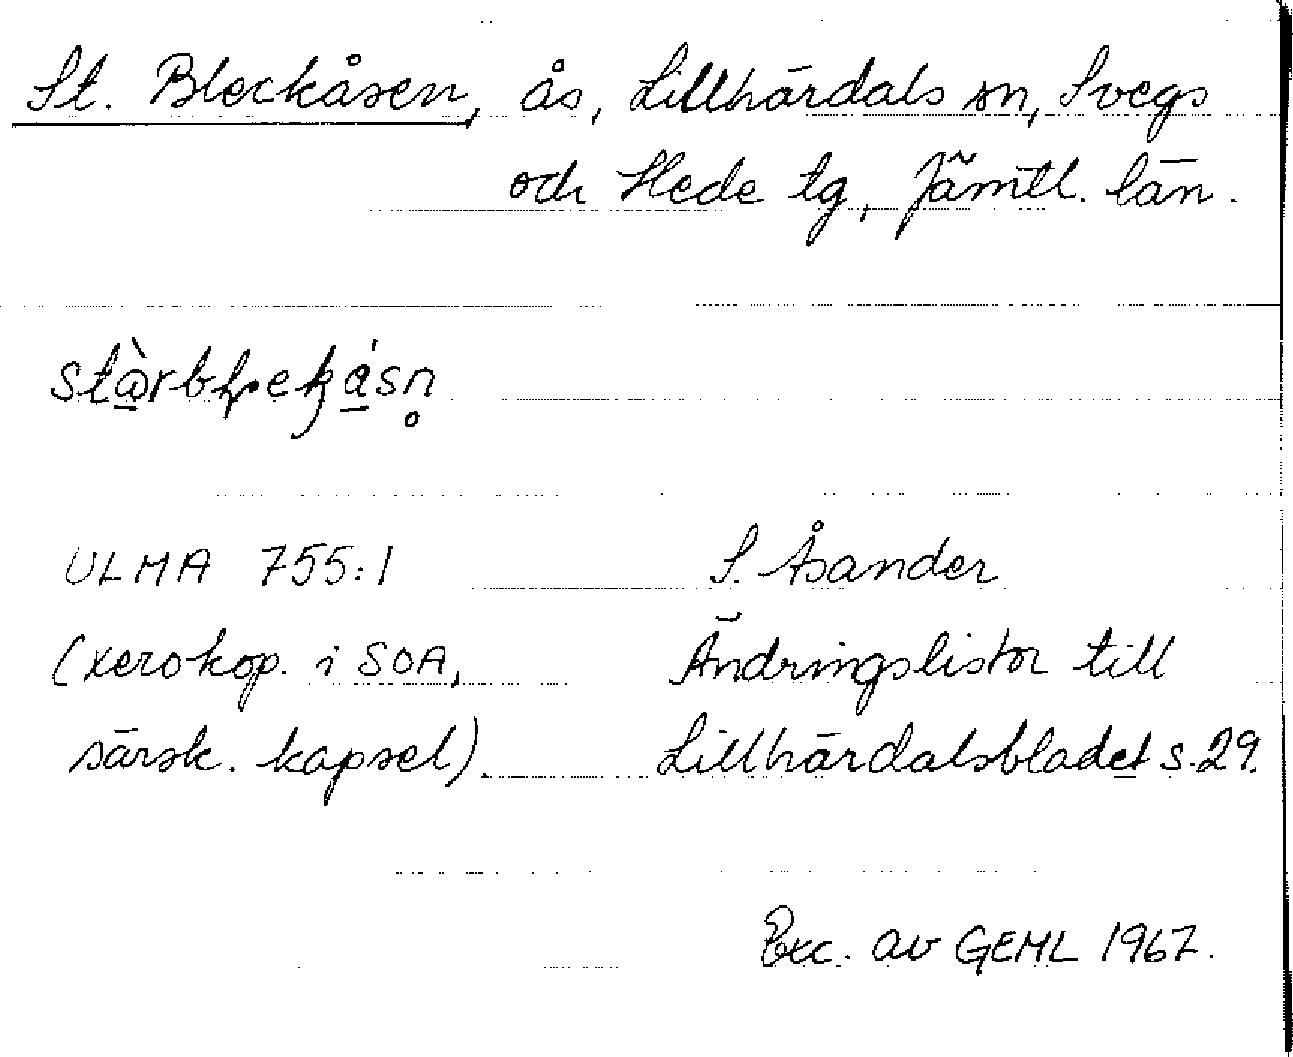 St. Bleckåsen, ås, Lillhärdals sn, Svegs
och Hede tg, Jämtl. län.
ULMA 755:1 S. Åsander
(xerokop. i SOA, Ändringslistor till
särsk. kapsel). Lillhärdalsbladet s. 29.
Exc. av GEML 1967.